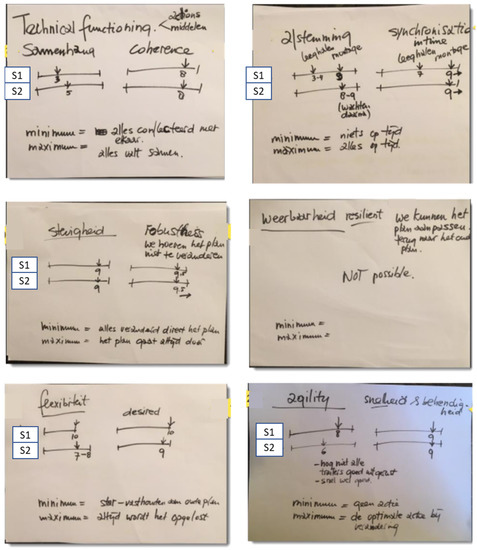 Technical functioning. < acties
middelen
Samenhang coherence
S1
S2
3
5
8
8
minimum = alles conflicteerd met
elkaar.
maximum = alles valt samen.
afstemming synchronisatie
in time
leeghalen montage leeghalen montage
S1
S2
3-4 9 7 9→
8-9 9→
(wachten
daarna)
minimum = niets op tijd
maximum = alles op tijd.
stevigheid Robustness
we hoeven het plan
niet te veranderen
S1
S2
9 9.5
9 9.5
→
minimum = alles verandert direct het plan
maximum = het plan gaat altijd door
weerbaarheid resilient we kunnen het
plan aanpassen.
terug naar het oude
plan.
NOT possible.
minimum =
maximum =
flexibiteit desired
S1
S2
10 10
7-8 9
minimum = star - vasthouden aan oude plan
maximum = altijd wordt het opgelost
agility snelheid & behendig-
heid
S1
S2
8 9
6 9
- nog niet alle
- snel wel goed.
minimum = geen actie
maximum = de optimale actie bij
verandering